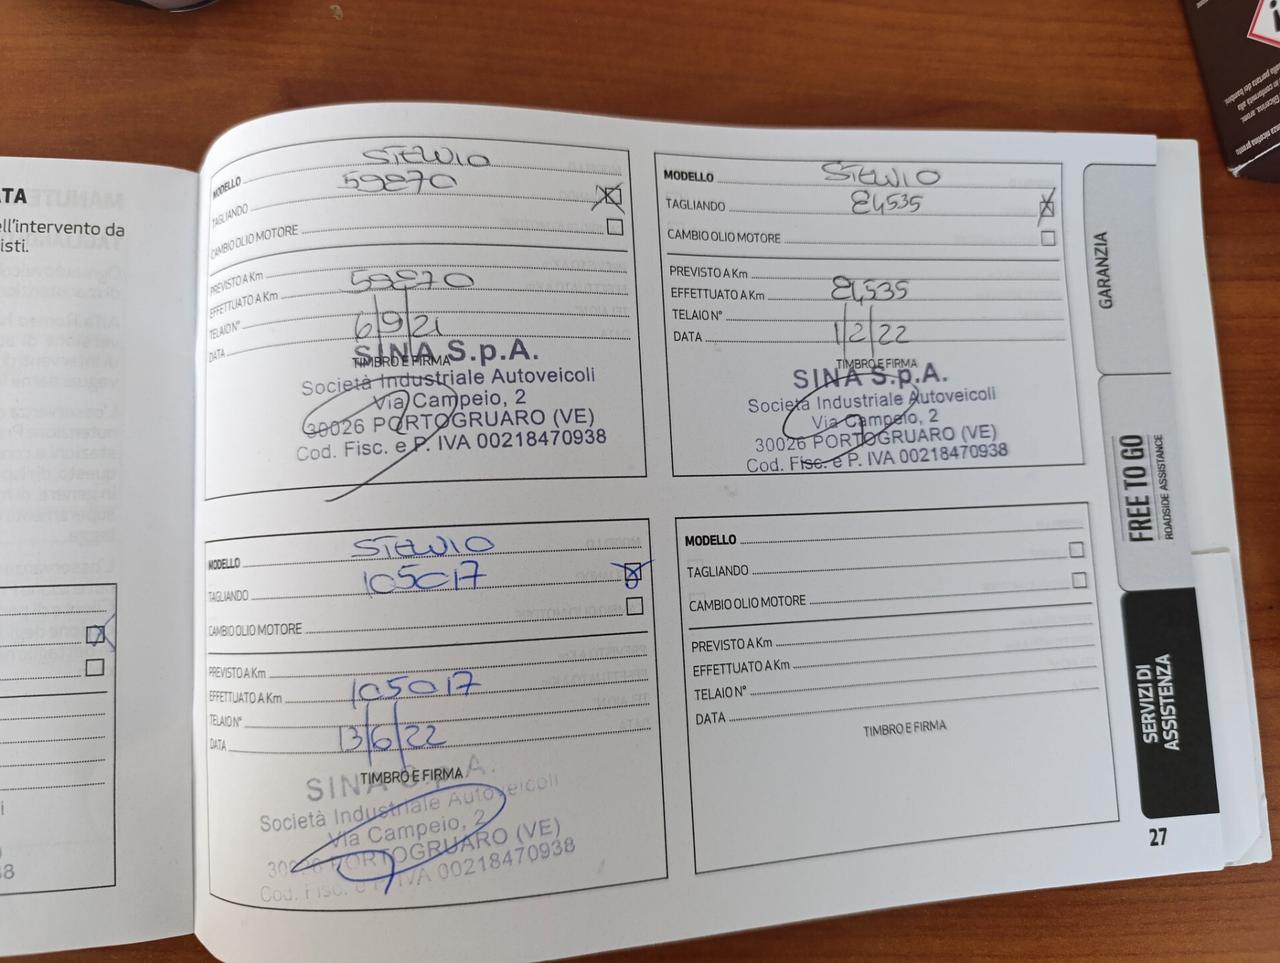 ATA
ell'intervento da
isti.
MODELLO STELVIO
TAGLIANDO 59870
CAMBIO OLIO MOTORE
PREVISTO A Km
EFFETTUATO A Km 59870
TELAIO N°
DATA 6/9/21
TIMBRO E FIRMA
SINA S.p.A.
Società Industriale Autoveicoli
Via Campeio, 2
30026 PORTOGRUARO (VE)
Cod. Fisc. e P. IVA 00218470938
MODELLO STELVIO
TAGLIANDO 84535
CAMBIO OLIO MOTORE
PREVISTO A Km
EFFETTUATO A Km 84535
TELAIO N°
DATA 1/2/22
TIMBRO E FIRMA
SINA S.p.A.
Società Industriale Autoveicoli
Via Campeio, 2
30026 PORTOGRUARO (VE)
Cod. Fisc. e P. IVA 00218470938
MODELLO STELVIO
TAGLIANDO 105017
CAMBIO OLIO MOTORE
PREVISTO A Km
EFFETTUATO A Km 105017
TELAIO N°
DATA 13/6/22
TIMBRO E FIRMA
SINA S.p.A.
Società Industriale Autoveicoli
Via Campeio, 2
30026 PORTOGRUARO (VE)
Cod. Fisc. e P. IVA 00218470938
MODELLO
TAGLIANDO
CAMBIO OLIO MOTORE
PREVISTO A Km
EFFETTUATO A Km
TELAIO N°
DATA
TIMBRO E FIRMA
GARANZIA
FREE TO GO
ROADSIDE ASSISTANCE
SERVIZI DI
ASSISTENZA
27